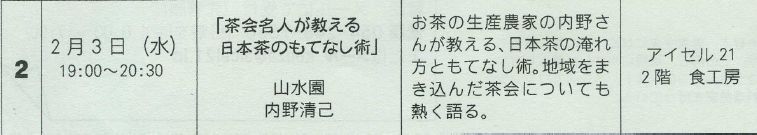 2
2月3日（水）
19:00～20:30
「茶会名人が教える
日本茶のもてなし術」
山水園
内野清己
お茶の生産農家の内野さ
んが教える、日本茶の淹れ
方ともてなし術。地域をま
き込んだ茶会についても
熱く語る。
アイセル21
2階　食工房